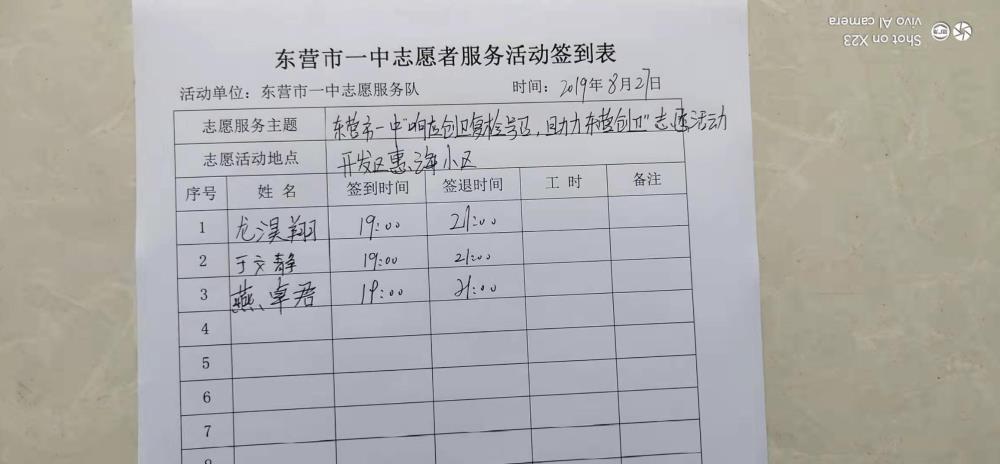 Shot on X23
vivo AI camera
东营市一中志愿者服务活动签到表
活动单位：东营市一中志愿服务队 时间：2019年8月27日
志愿服务主题 东营市一中"响应创卫复检号召，助力东营创卫"志愿活动
志愿活动地点 开发区惠海小区
序号 姓名 签到时间 签退时间 工时 备注
1 尤淏翔 19:00 21:00
2 于文静 19:00 21:00
3 燕卓君 19:00 21:00
4
5
6
7